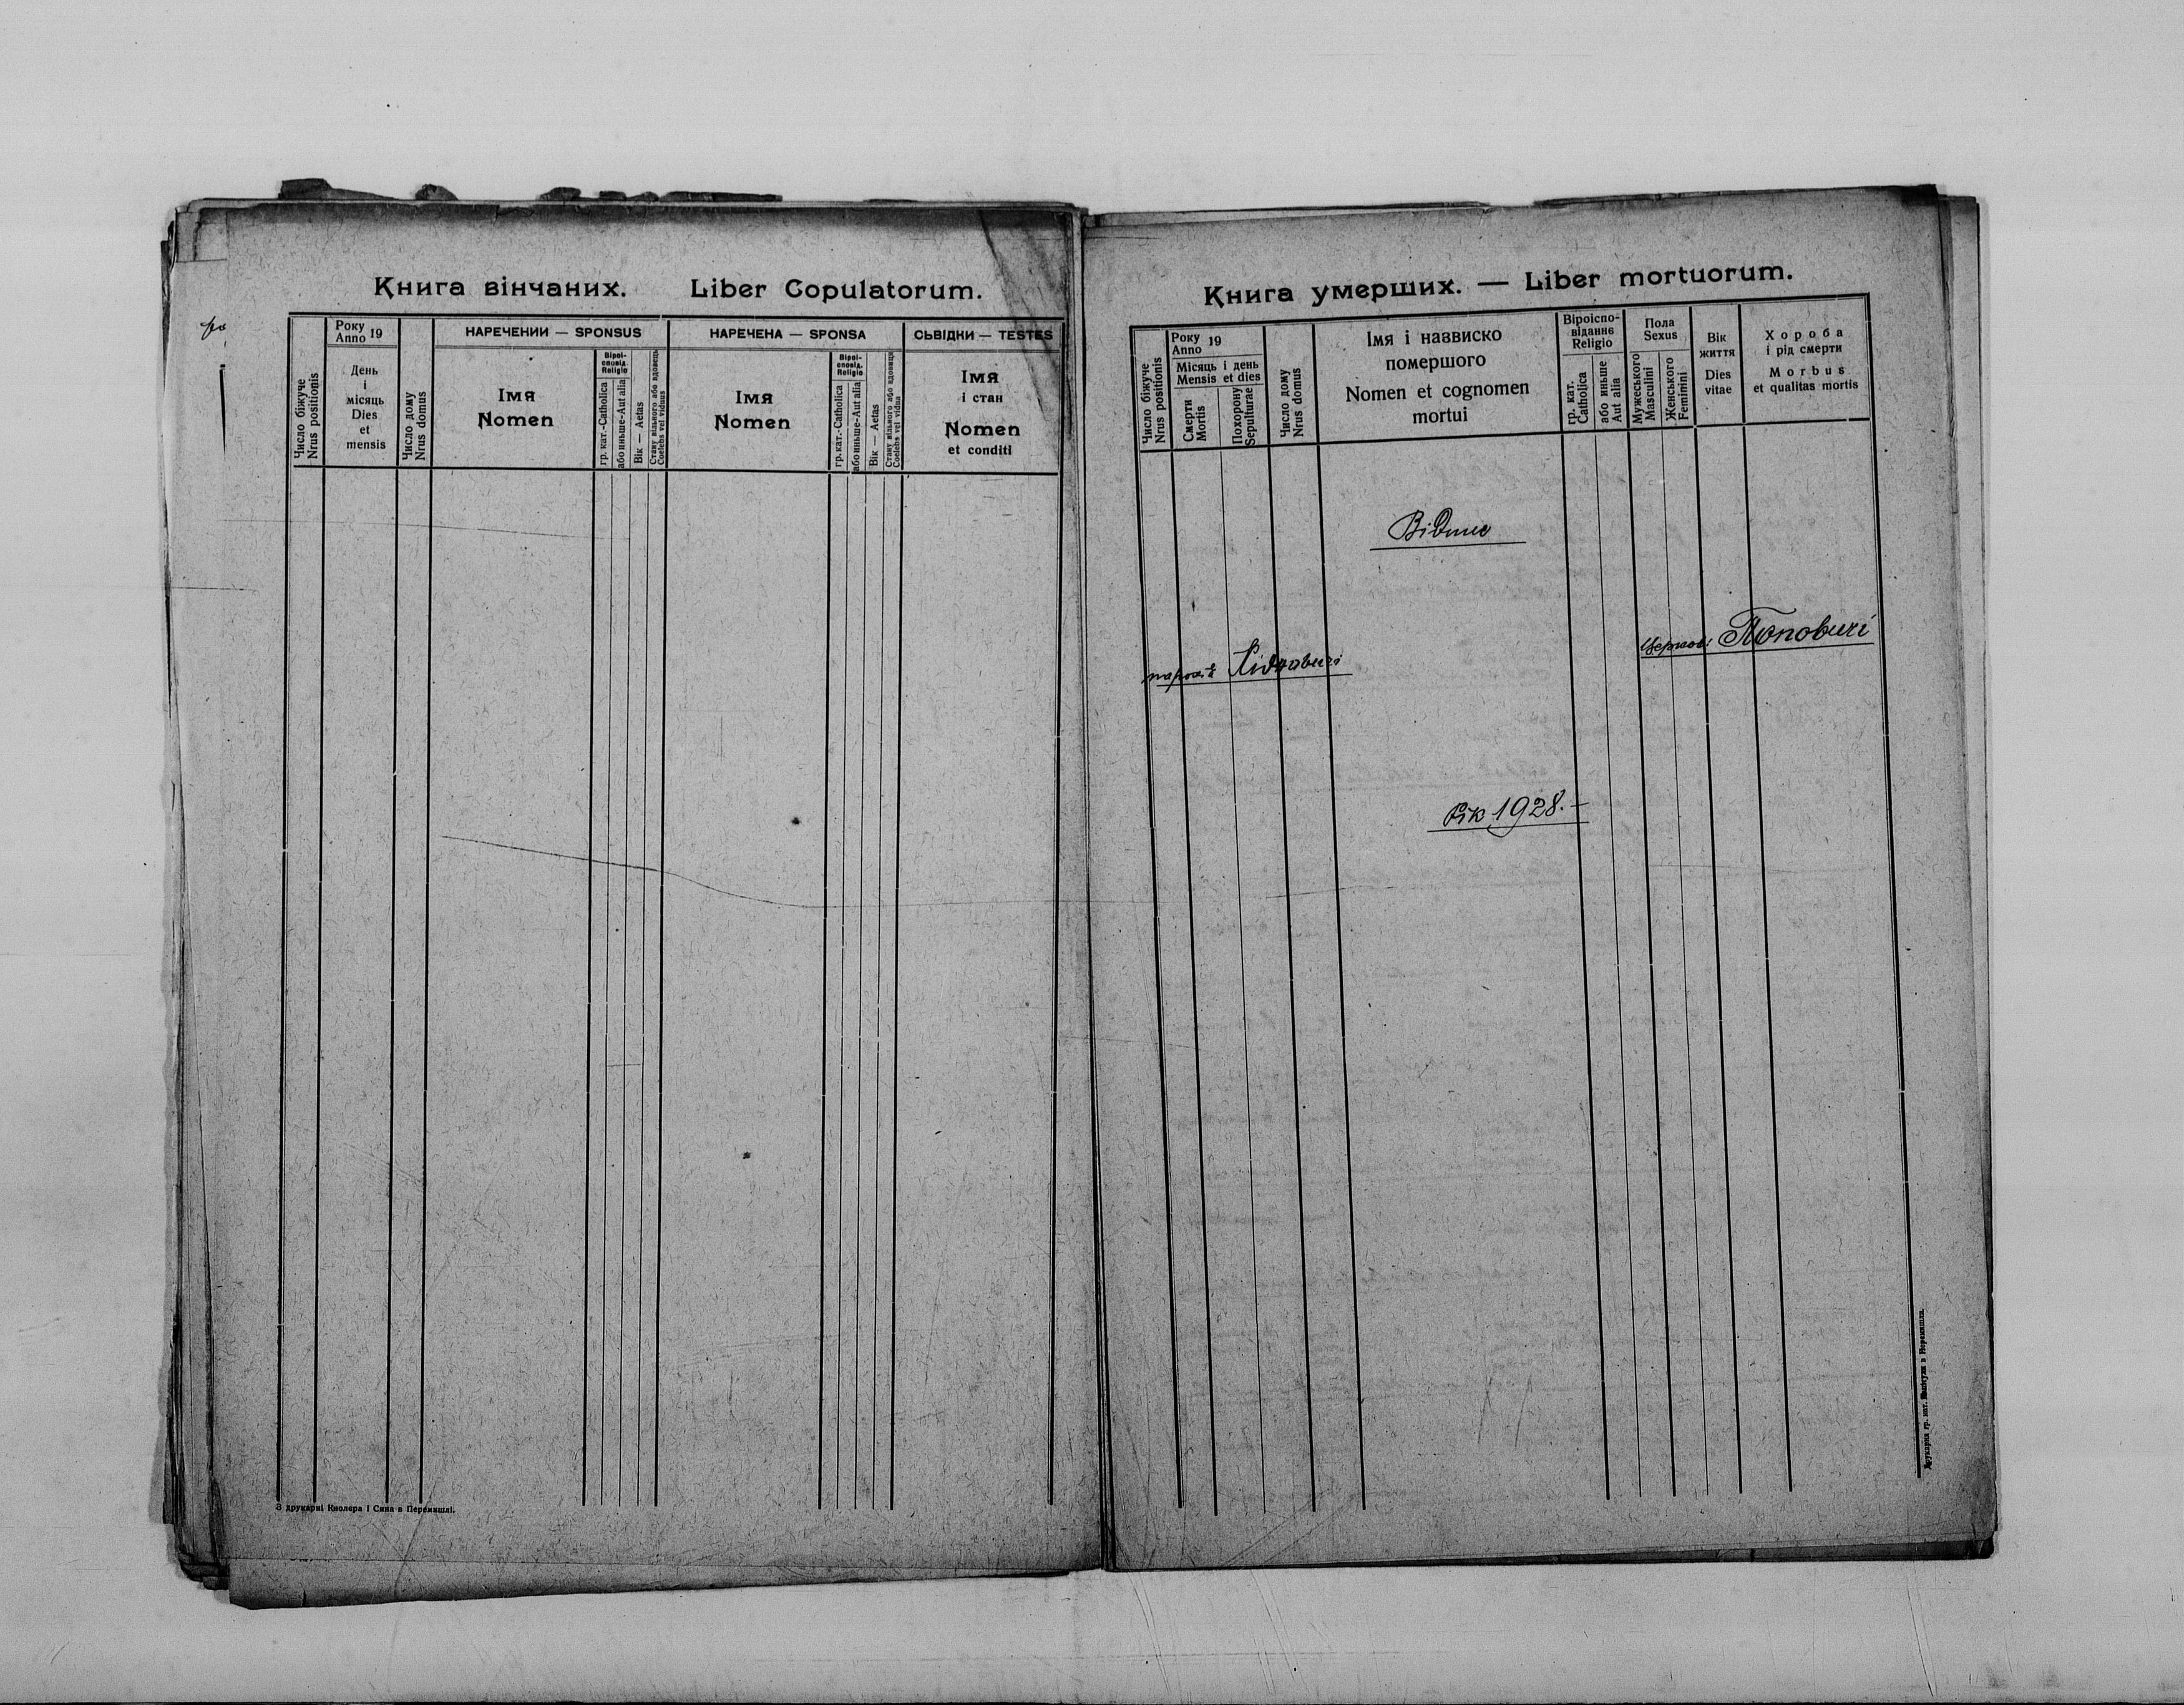 Книга вінчаних. Liber Copulatorum.
Число біжуче
Nrus positionis
Року
Anno 19
День
і
місяць
Dies
et
mensis
Число дому
Nrus domus
НАРЕЧЕНИИ — SPONSUS
Імя
Nomen
Віроі-
сповід.
Religio
гр. кат.-Catholica
або иньше-Aut alia
Вік — Aetas
Стану вільного або вдовець
Coelebs vel viduus
НАРЕЧЕНА — SPONSA
Імя
Nomen
Віроі-
сповід.
Religio
гр. кат.-Catholica
або иньше-Aut alia
Вік — Aetas
Стану вільного або вдовиця
Coelebs vel vidua
СЬВІДКИ — TESTES
Імя
і стан
Nomen
et conditi
З друкарні Кнолєра і Сина в Перемишлі.
Книга умерших. — Liber mortuorum.
Число біжуче
Nrus positionis
Року
Anno 19
Місяць і день
Mensis et dies
Смерти
Mortis
Похорону
Sepulturae
Число дому
Nrus domus
Імя іназвиско
помершого
Nomen et cognomen
mortui
Віроіспо-
віданнє
Religio
гр. кат.
Catholica
або иньше
Aut alia
Пола
Sexus
Мужеського
Masculini
Женського
Feminini
Вік
життя
Dies
vitae
Хороба
і рід смерти
Morbus
et qualitas mortis
Церков: Поповичі
Рік 1928.—
Друкарня гр. кат. Капітули в Перемишли.